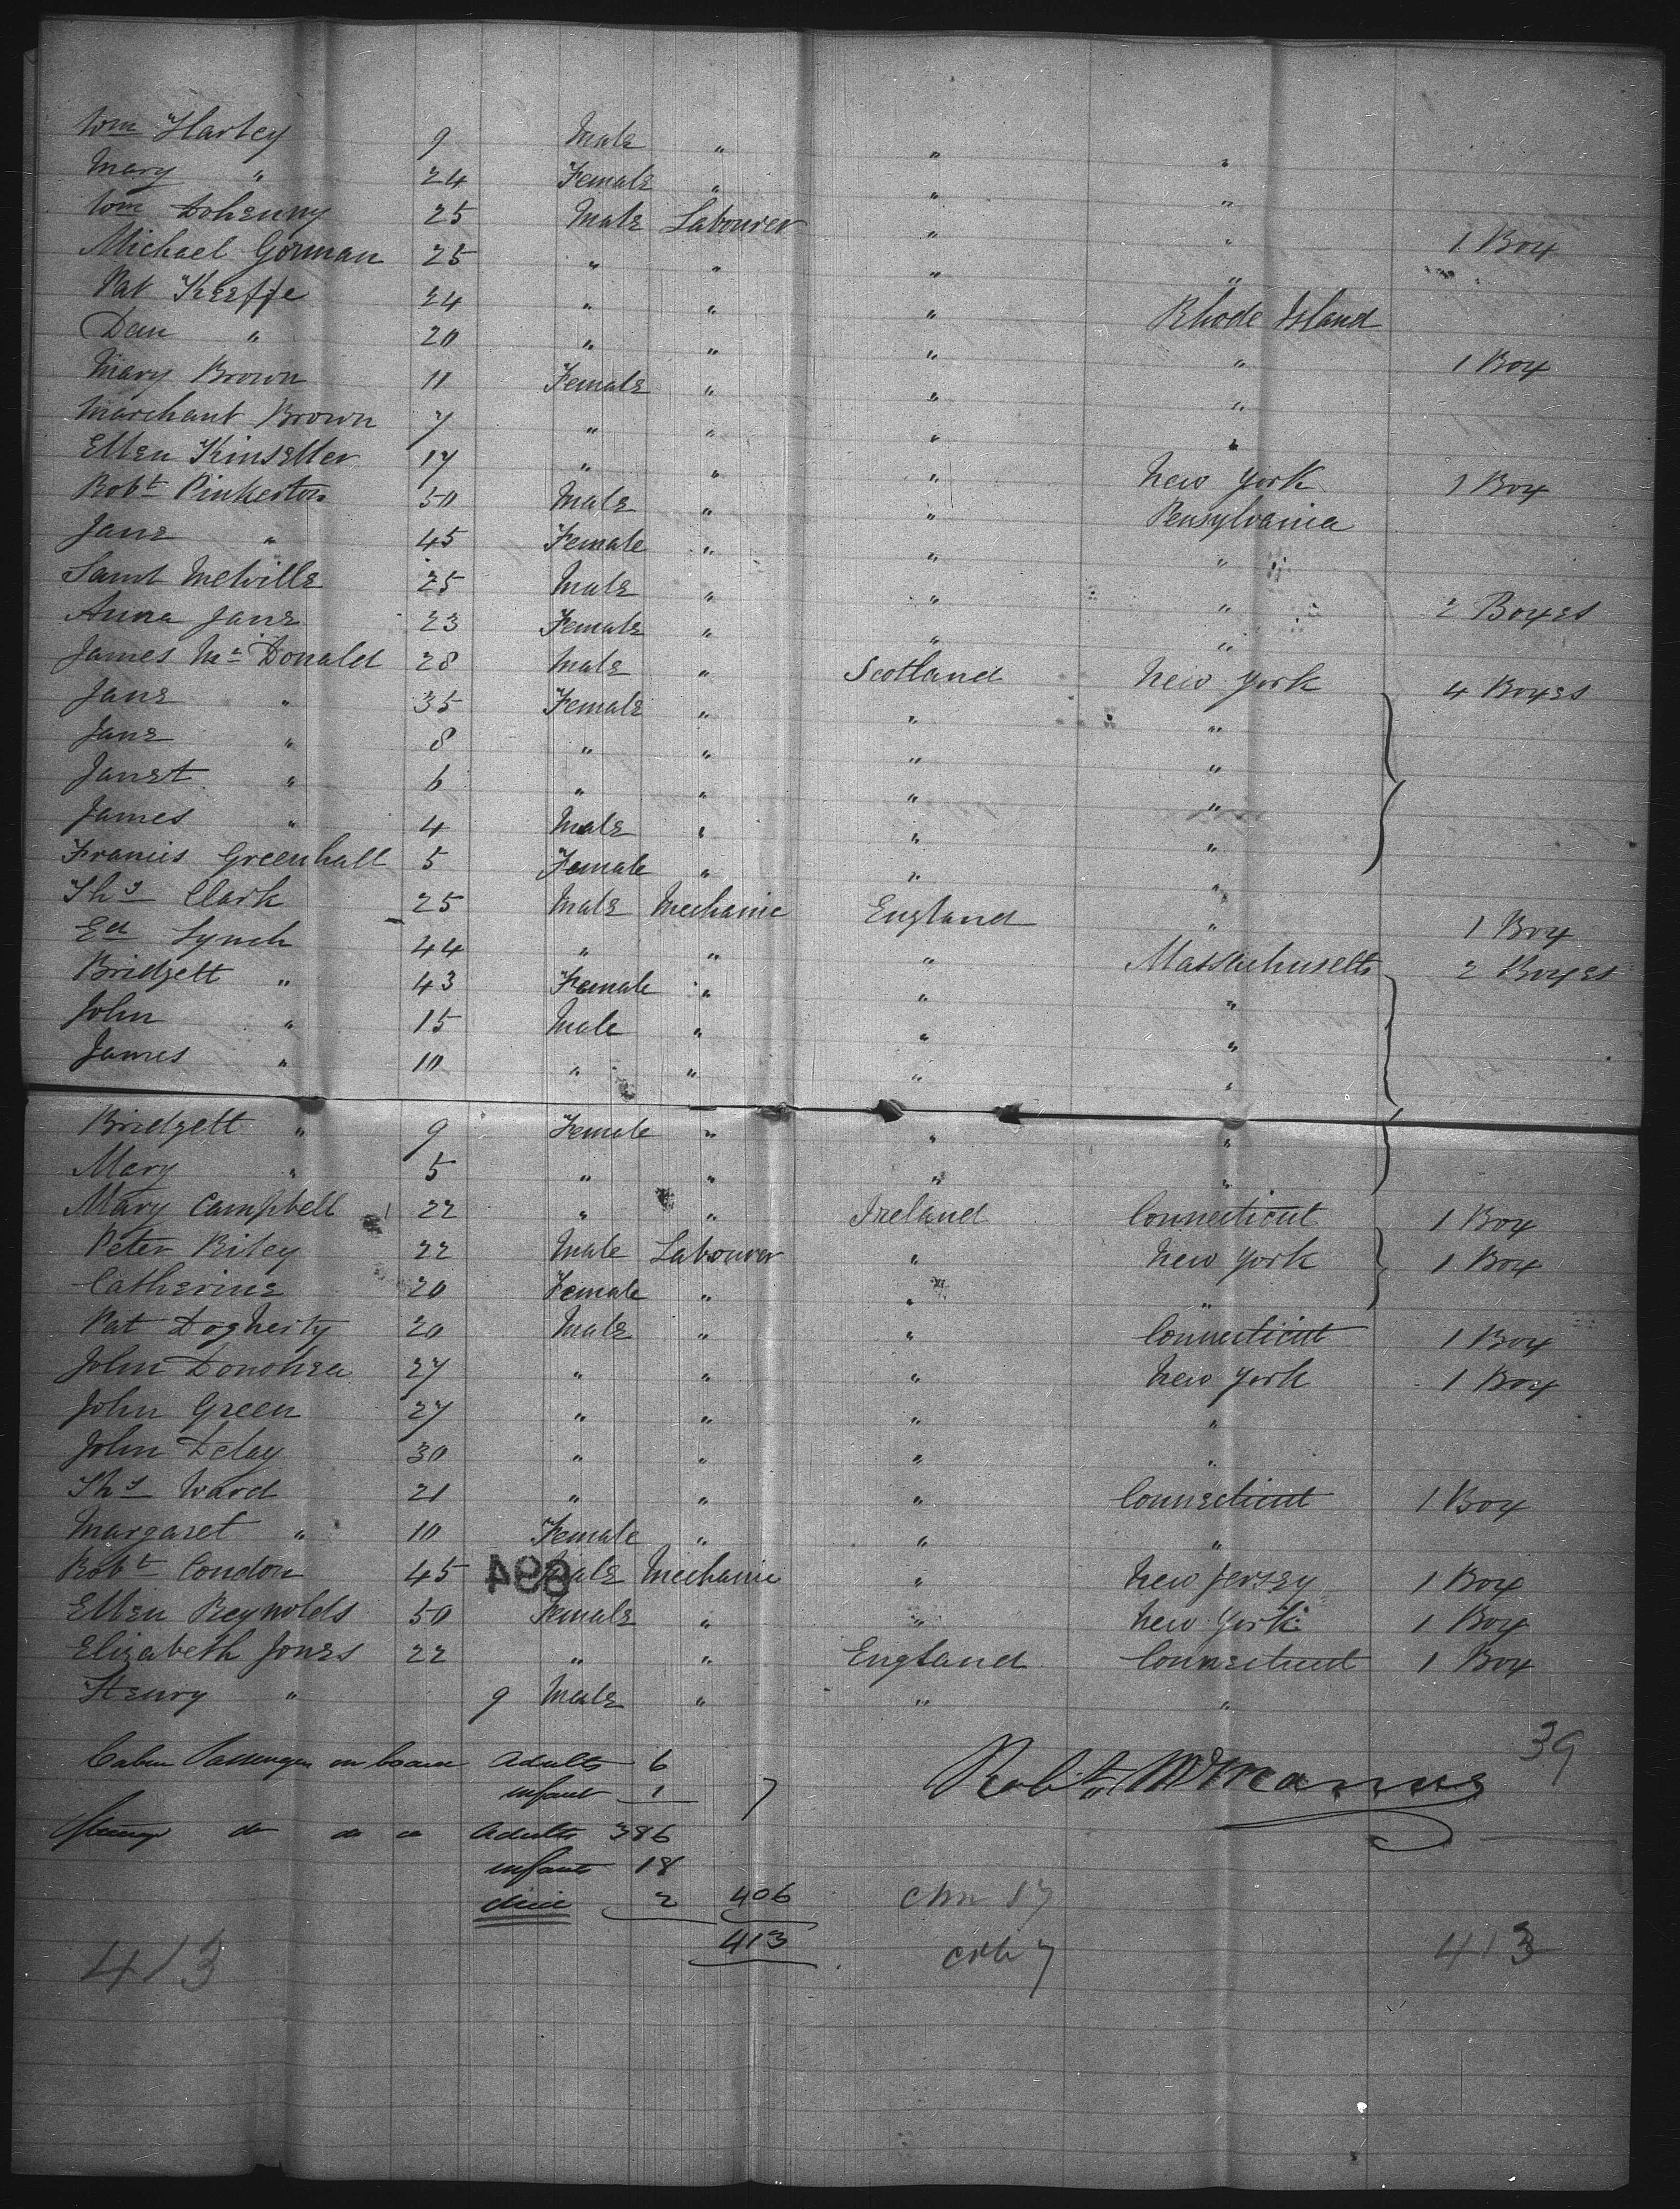 Wm Harley 9 Male " " "
Mary " 24 Female " " "
Wm Doheuny 25 Male Labourer " " 1 Box
Michael Gorman 25 " " " "
Pat Keeffe 24 " " " Rhode Island
Dan " 20 " " " " 1 Box
Mary Brown 11 Female " " "
Marchant Brown 7 " " " "
Ellen Kinseller 17 " " " New York 1 Box
Robt Pinkerton 50 Male " " Pensylvania
Jane " 45 Female " " "
Saml Melville 25 Male " " " 2 Boxes
Anna Jane 23 Female " " "
James Mc Donald 28 Male " Scotland New York 4 Boxes
Jane " 35 Female " " "
Jane " 8 " " " "
Janet " 6 " " " "
James " 4 Male " " "
Francis Greenhall 5 Female " " "
Ths Clark 25 Male Mechanic England " 1 Box
Ed Lynch 44 " " " Massachusetts 2 Boxes
Bridgett " 43 Female " " "
John " 15 Male " " "
James " 10 " " " "
Bridgett " 9 Female " " "
Mary " 5 " " " "
Mary Campbell 22 " " Ireland Connecticut 1 Box
Peter Riley 22 Male Labourer " New York 1 Box
Catherine 20 Female " " "
Pat Dogherty 20 Male " " Connecticut 1 Box
John Donohea 27 " " " New York 1 Box
John Green 27 " " " "
John Delay 30 " " " "
Ths Ward 21 " " " Connecticut 1 Box
Margaret " 10 Female " " "
Robt Condon 45 Male Mechanic " New Jersey 1 Box
Ellen Reynolds 50 Female " " New York 1 Box
Elizabeth Jones 22 " " England Connecticut 1 Box
Henry " 9 Male " " "
39
Cabin Passengers on board Adults 6
infant 1 7
Steerage do do do Adults 386
infants 18
2 406
413
413
413